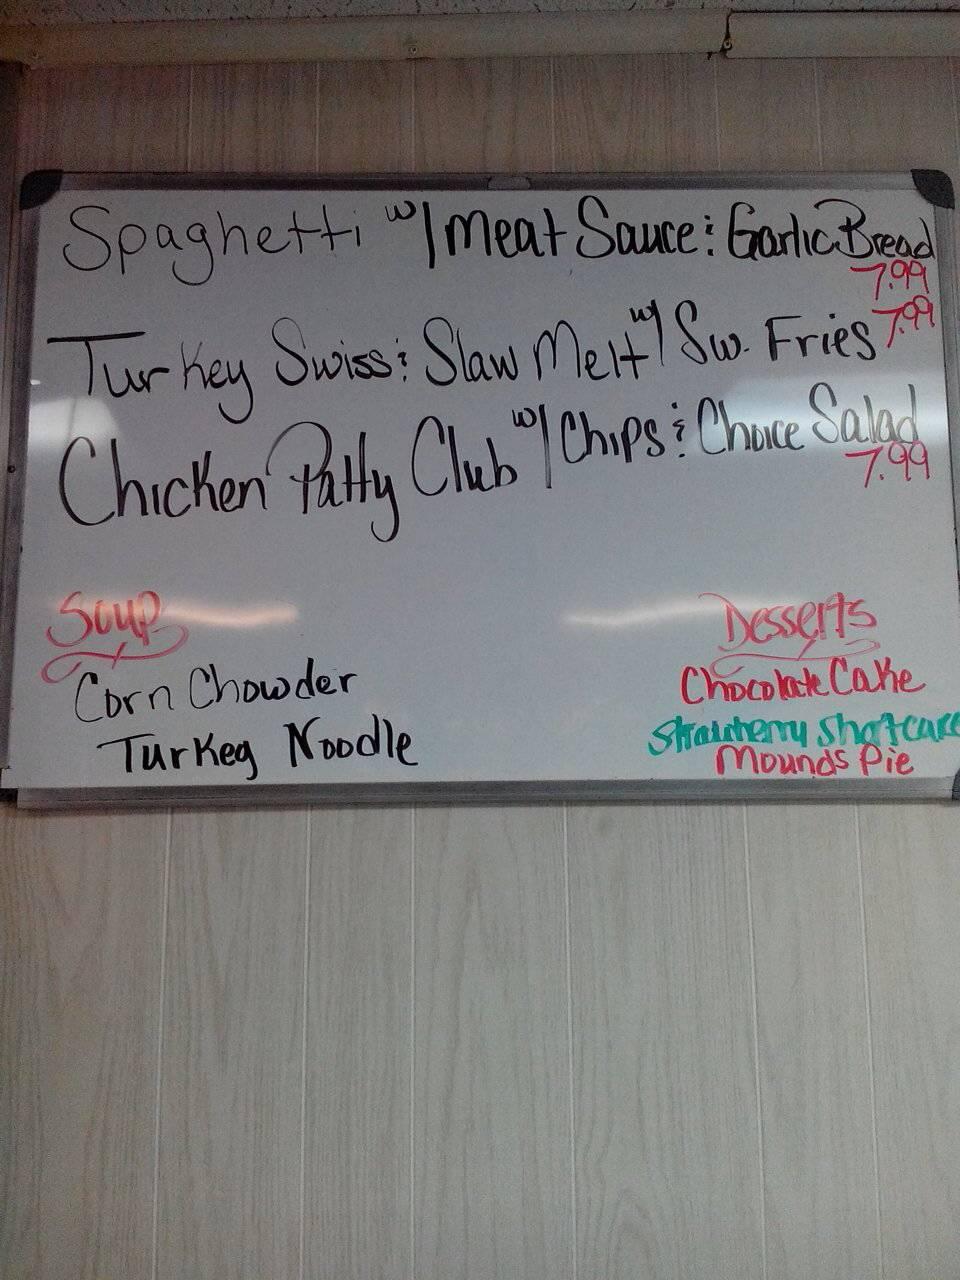 Spaghetti w/ Meat Sauce & Garlic Bread
7.99
Turkey Swiss & Slaw Melt w/ Sw. Fries 7.99
Chicken Patty Club w/ Chips & Choice Salad
7.99
Soup
Corn Chowder
Turkey Noodle
Desserts
Chocolate Cake
Strawberry Shortcake
Mounds Pie